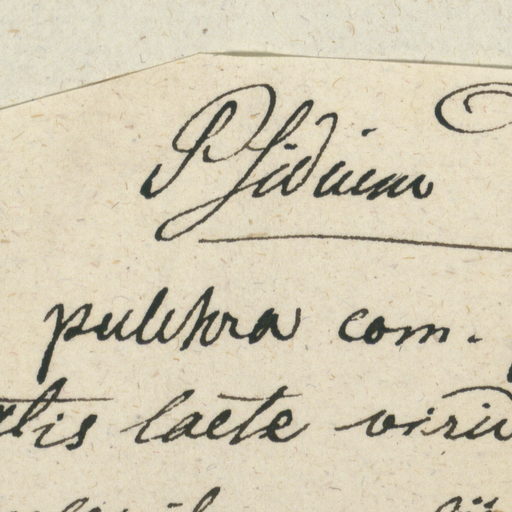 Psidium
pulchra com.
laete virid